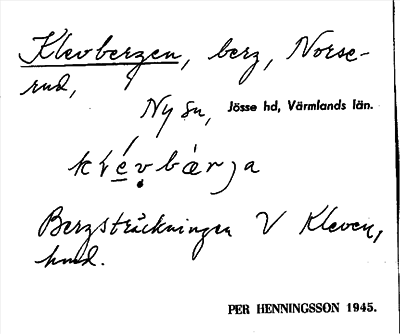 Klevbergen, berg, Norse-
rud,
Ny sn, Jösse hd, Värmlands län.
Bergsträckningen V Kleven,
hmd.
PER HENNINGSSON 1945.